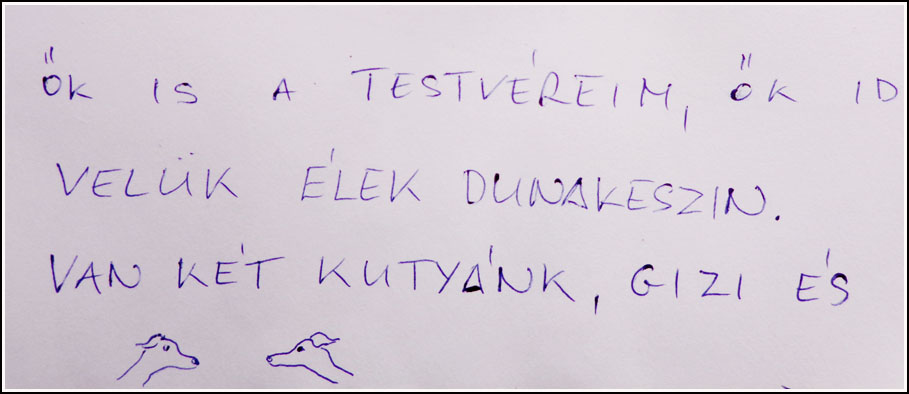 ŐK IS A TESTVÉREIM, ŐK ID
VELÜK ÉLEK DUNAKESZIN.
VAN KÉT KUTYÁNK, GIZI ÉS